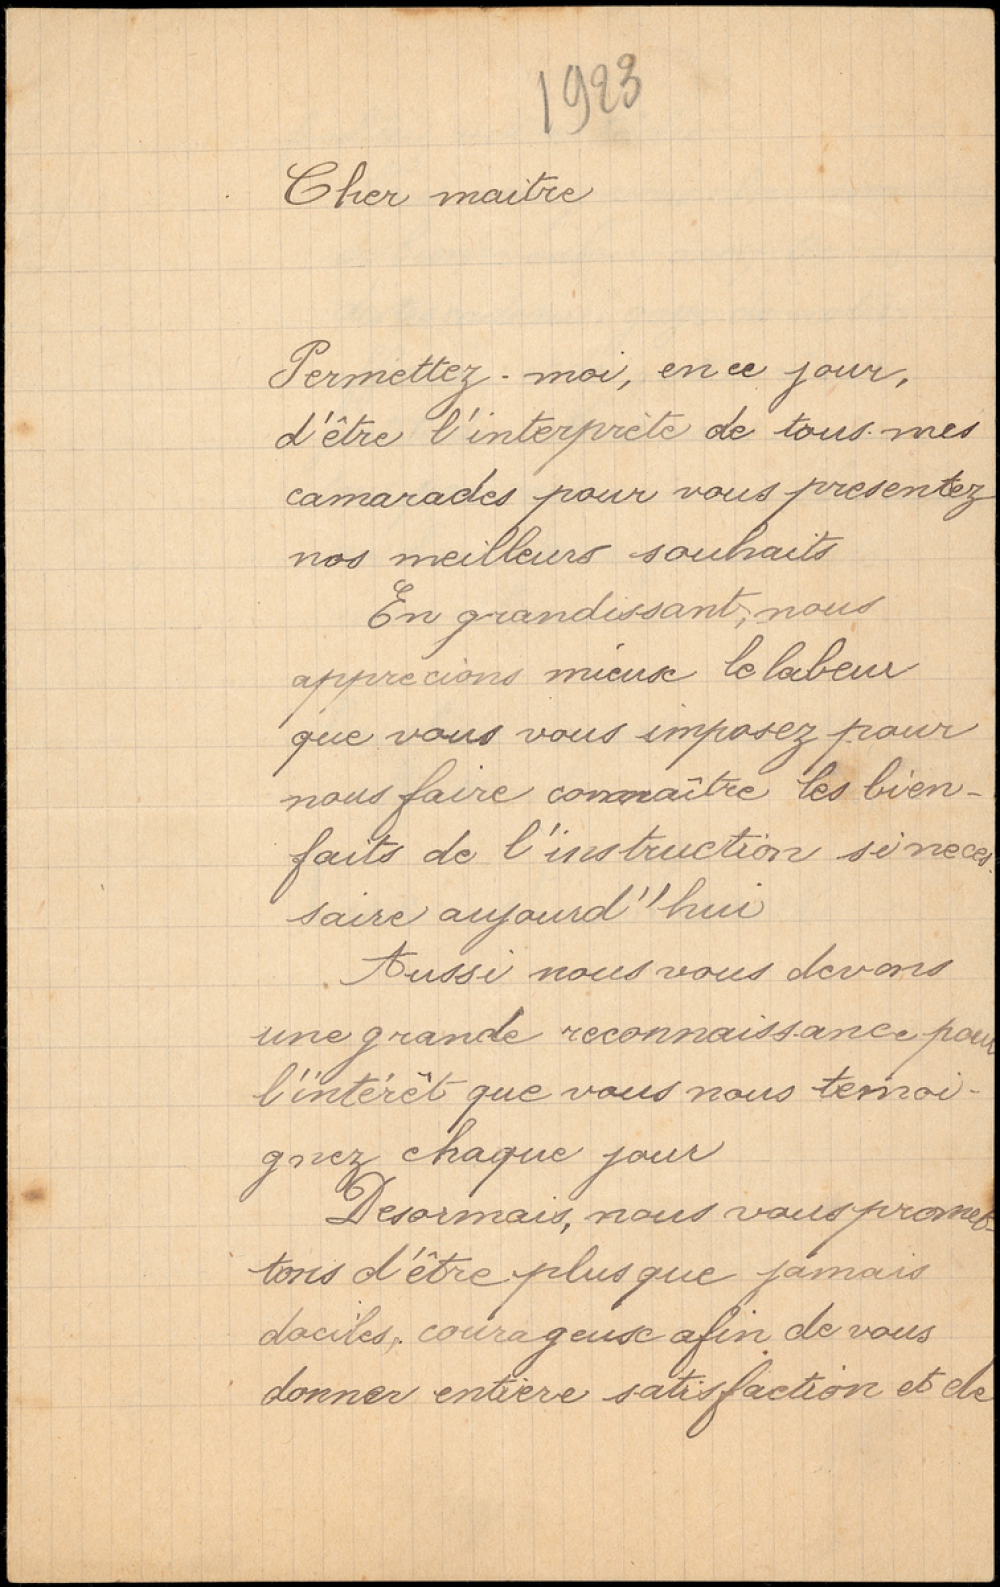 1923
Cher maitre
Permettez-moi, en ce jour,
d'être l'interprète de tous mes
camarades pour vous presentez
nos meilleurs souhaits
En grandissant, nous
apprecions mieux le labeur
que vous vous imposez pour
nous faire connaître les bien-
faits de l'instruction si neces-
saire aujourd'hui
Aussi nous vous devons
une grande reconnaissance pour
l'intérêt que vous nous temoi-
gnez chaque jour
Desormais, nous vous promet-
tons d'être plus que jamais
dociles, courageux afin de vous
donner entière satisfaction et de